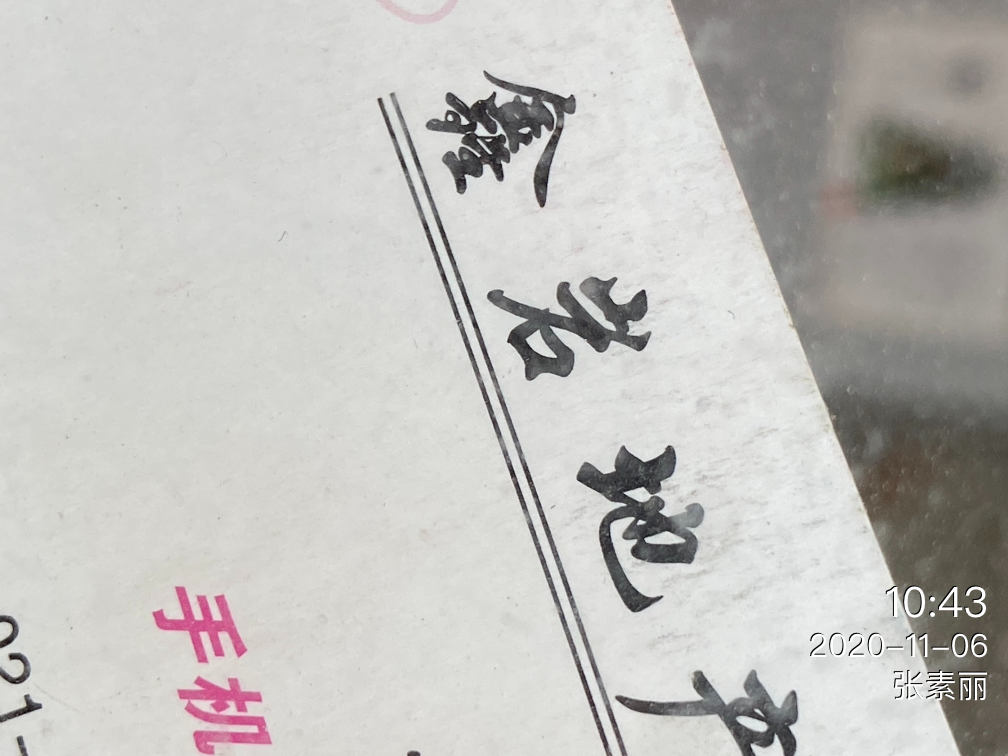 鑫
地产
手机
021-
10:43
2020-11-06
张素丽